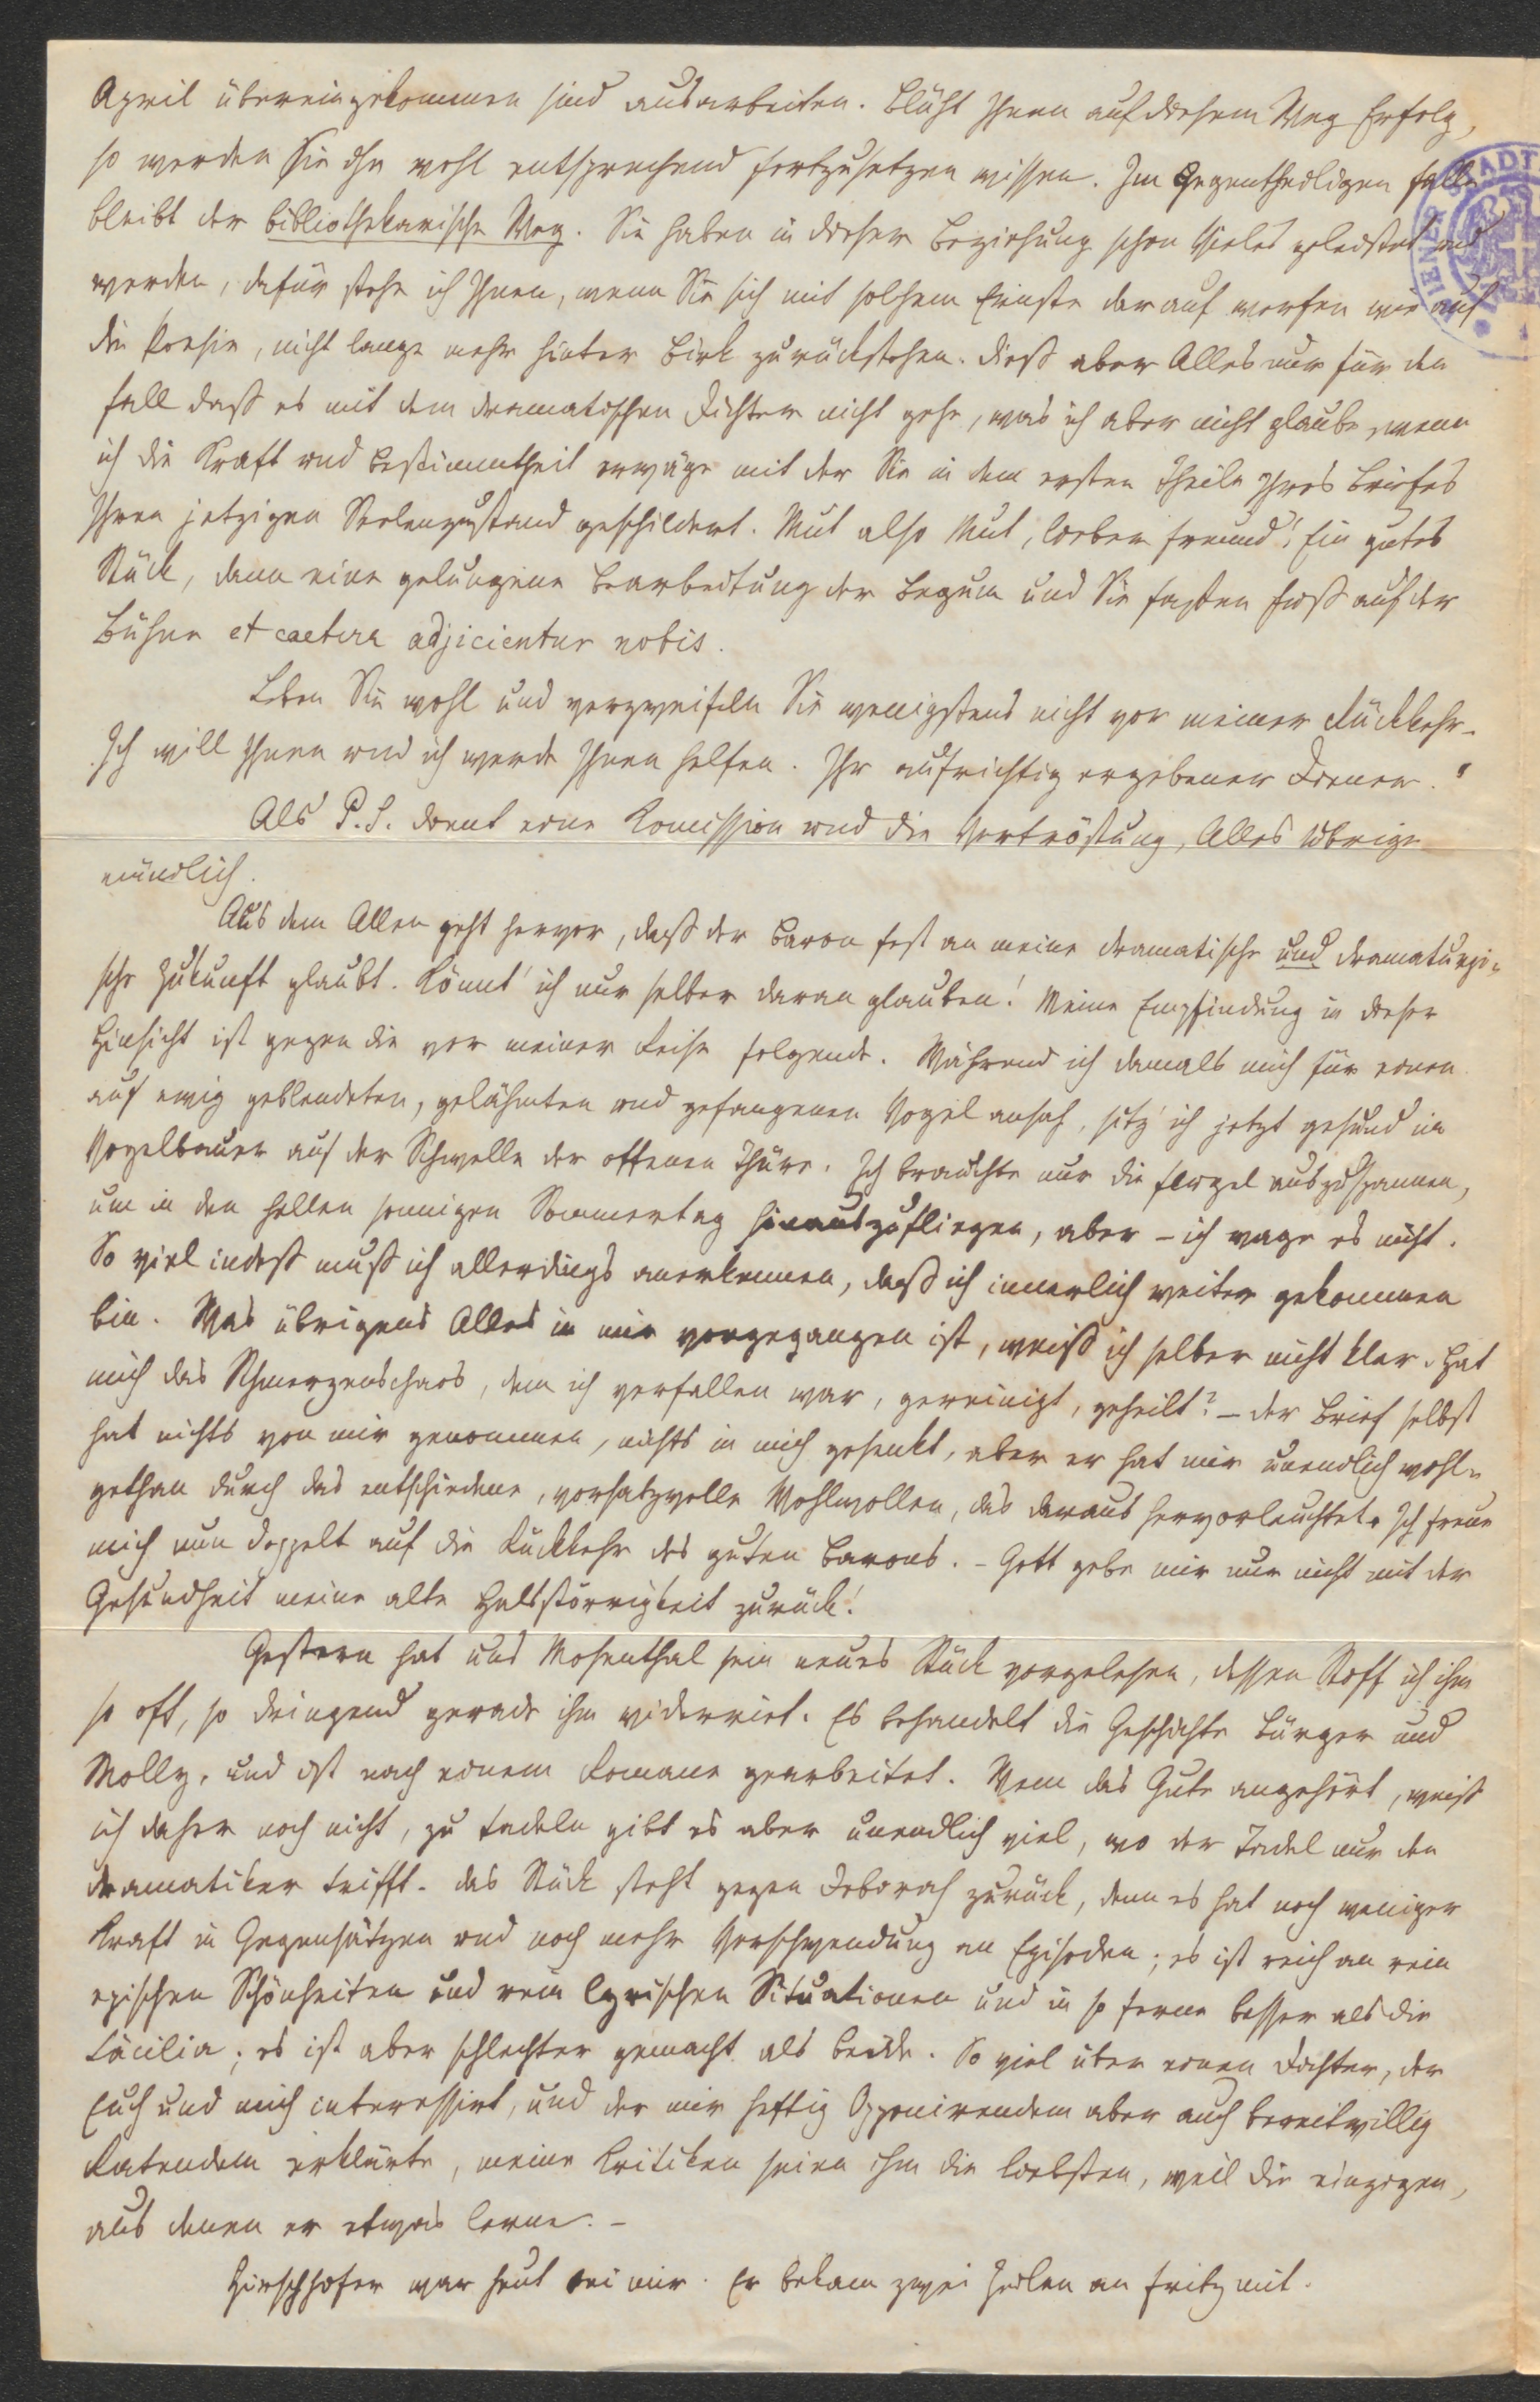 April übereingekommen sind ausarbeiten. Blüht Ihnen auf diesem Weg Erfolg,
so werden Sie ihn wohl entsprechend fortzusetzen wissen. Im gegentheiligen Falle
bleibt der bibliothekarische Weg. Sie haben in dieser Beziehung schon Vieles geleistet und
werden, dafür stehe ich Ihnen, wenn Sie sich mit solchem Ernste darauf werfen wie auf
die Poesie, nicht lange mehr hinter Birk zurückstehen. Dieß aber Alles nur für den
Fall daß es mit dem dramatischen Dichter nicht gehe, was ich aber nicht glaube, wenn
ich die Kraft und Bestimmtheit erwäge mit der Sie in dem ersten Theile Ihres Briefes
Ihren jetzigen Seelenzustand geschildert. Mut also Mut, lieber Freund! Ein gutes
Stück, dann eine gelungene Bearbeitung der Begum und Sie faßten Fuß auf der
Bühne et caetera adjicientur nobis.
Leben Sie wohl und verzweifeln Sie wenigstens nicht vor meiner Rückkehr.
Ich will Ihnen und ich werde Ihnen helfen. Ihr aufrichtig ergebener Diener."
Als P.S. dient eine Komission und die Vertröstung, Alles Übrige
mündlich.
Aus dem Allen geht hervor, daß der Baron fest an meine dramatische und dramaturgi-
sche Zukunft glaubt. Könnt' ich nur selber daran glauben! Meine Empfindung in dieser
Hinsicht ist gegen die vor meiner Reise folgende. Während ich damals mich für einen
auf ewig geblendeten, gelähmten und gefangenen Vogel ansah, sitz' ich jetzt gesund im
Vogelbauer auf der Schwelle der offenen Thüre. Ich brauchte nur die Flügel auszuspannen,
um in den hellen sonnigen Sommertag hinauszufliegen, aber – ich wage es nicht.
So viel indeß muß ich allerdings anerkennen, daß ich innerlich weiter gekommen
bin. Was übrigens Alles in mir vorgegangen ist, weiß ich selber nicht klar. Hat
mich das Schmerzenschaos, dem ich verfallen war, gereinigt, geheilt? – Der Brief selbst
hat nichts von mir genommen, nichts in mich gesenkt, aber er hat mir unendlich wohl-
gethan durch das entschiedene, vorsatzvolle Wohlwollen, das daraus hervorleuchtet. Ich freue
mich nun doppelt auf die Rückkehr des guten Barons. – Gott gebe mir nur nicht mit der
Gesundheit meine alte Halsstörrigkeit zurück!
Gestern hat uns Mosenthal sein neues Stück vorgelesen, dessen Stoff ich ihm
so oft, so dringend gerade ihm widerriet. Es behandelt die Geschichte Bürger und
Molly, und ist nach einem Romane gearbeitet. Wem das Gute angehört, weiß
ich daher noch nicht, zu tadeln gibt es aber unendlich viel, wo der Tadel nur den
Dramatiker trifft. Das Stück steht gegen Deborah zurück, denn es hat noch weniger
Kraft in Gegensätzen und noch mehr Verschwendung an Episoden; es ist reich an rein
epischen Schönheiten und rein lyrischen Situationen und in so ferne besser als die
Cäcilia; es ist aber schlechter gemacht als beide. So viel über einen Dichter, der
Euch und mich interessirt, und der mir heftig Opponirendem aber auch bereitwillig
Ratendem erklärte, meine Kritiken seien ihm die liebsten, weil die einzigen,
aus denen er etwas lerne. –
Hirschhofer war heut bei mir. Er bekam zwei Zeilen an Fritz mit.